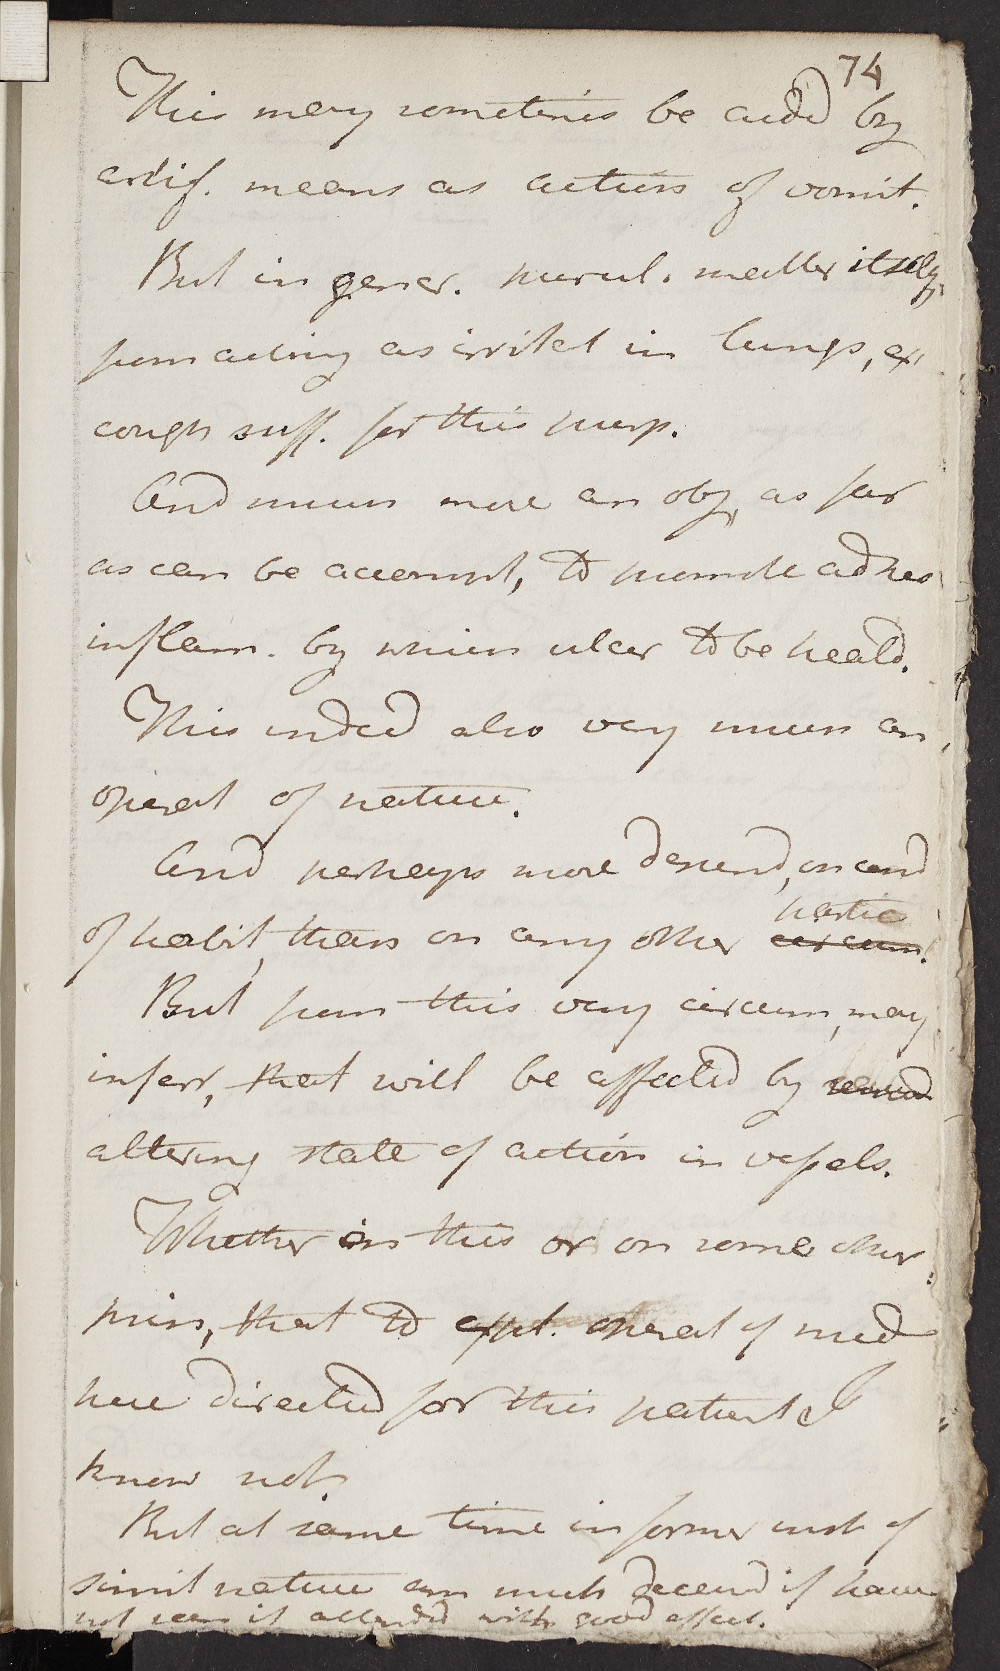 74
This may sometimes be aided by
artif. means as action of vomit.
But in gener. purul. matter itself,
from acting as irritat in lungs, ex
cough suff. for this purp.
And much more an obj, as far
as can be accompl, to promote adhes
inflam. by which ulcer to be heald.
This indeed also very much an
operat of nature.
And perhaps more depend, on cond
of habit, than on any other partic
circum.
But from this very circum, may
inferr, that will be affected by
altering state of action in vessels.
Whether on this or on some other
prin, that to expl. operat of med
here directed for this patient I
know not.
But at same time in former inst of
simil nature am much deceivd if have
not seen it attended with good effect.